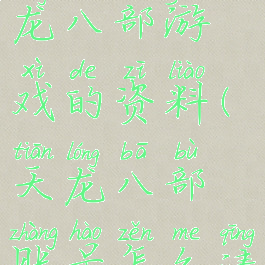 龙八部游
xì de zī liào
戏的资料(
tiān lóng bā bù
天龙八部
zhàng hào zěn me qǐng
账号怎么请